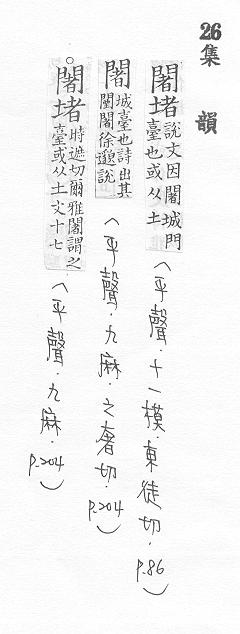 26集 韻
闍堵說文因闍城門臺也或从土（平聲．十一模．東徒切．p.86）
闍城臺也詩出其闉闍徐邈說（平聲．九麻．之奢切．p.204）
○闍堵時遮切爾雅闍謂之臺或从土文十七（平聲．九麻．p.204）